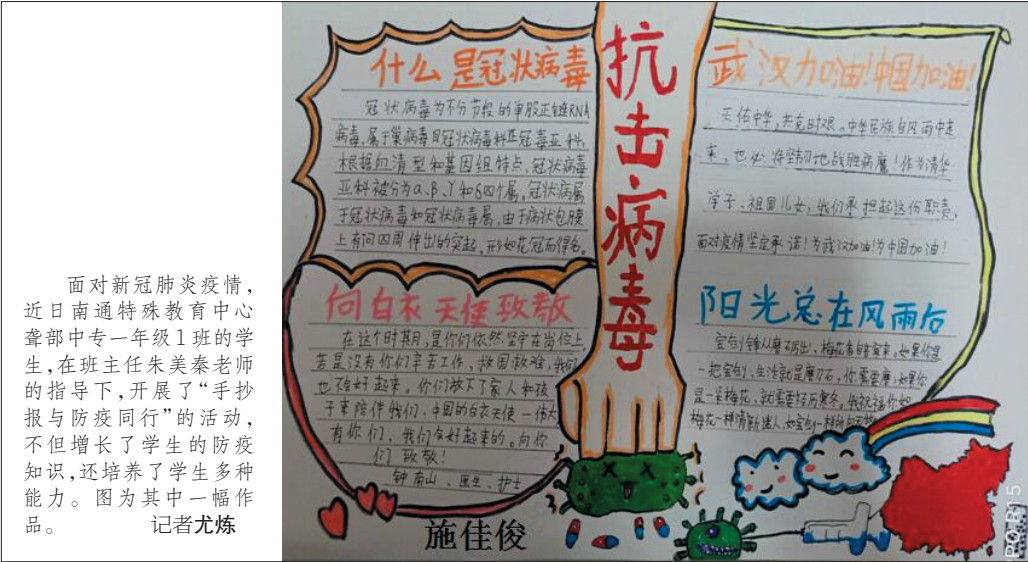 面对新冠肺炎疫情,
近日南通特殊教育中心
聋部中专一年级1班的学
生,在班主任朱美秦老师
的指导下,开展了“手抄
报与防疫同行”的活动,
不但增长了学生的防疫
知识,还培养了学生多种
能力。图为其中一幅作
品。 记者尤炼
抗击病毒
什么是冠状病毒
冠状病毒为不分节段的单股正链RNA
病毒,属于巢病毒目冠状病毒科正冠毒亚科,
根据血清型和基因组特点,冠状病毒
亚科被分为α、β、γ和δ四个属。冠状病属
于冠状病毒和冠状病毒属,由于病状包膜
上有向四周伸出的突起,形如花冠而得名。
武汉加油!中国加油!
天佑中华,共克时艰。中华民族自风雨中走
来,也必将坚韧地战胜病魔!作为清华
学子、祖国儿女,我们承担起这份职责,
面对疫情坚定承诺!为武汉加油!为中国加油!
向白衣天使致敬
在这个时期,是你们依然坚守在岗位上,
若是没有你们辛苦工作,救国救难,我们
也不会好起来。你们放下了家人和孩
子来陪伴我们,中国的白衣天使—伟大
有你们,我们会好起来的。向你
们致敬!
钟南山、医生、护士
阳光总在风雨后
宝剑锋从磨砺出,梅花香自苦寒来。如果你是
一把宝剑,生活就是磨刀石,你需要磨;如果你
是一朵梅花,就需要经历寒冬。我祝福你如
梅花一样清新迷人,如宝剑一样
施佳俊